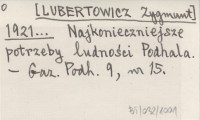 [LUBERTOWICZ Zygmunt]
1921... Najkonieczniejsze
potrzeby ludności Podhala.
– Gaz. Podh. 9, nr 15.